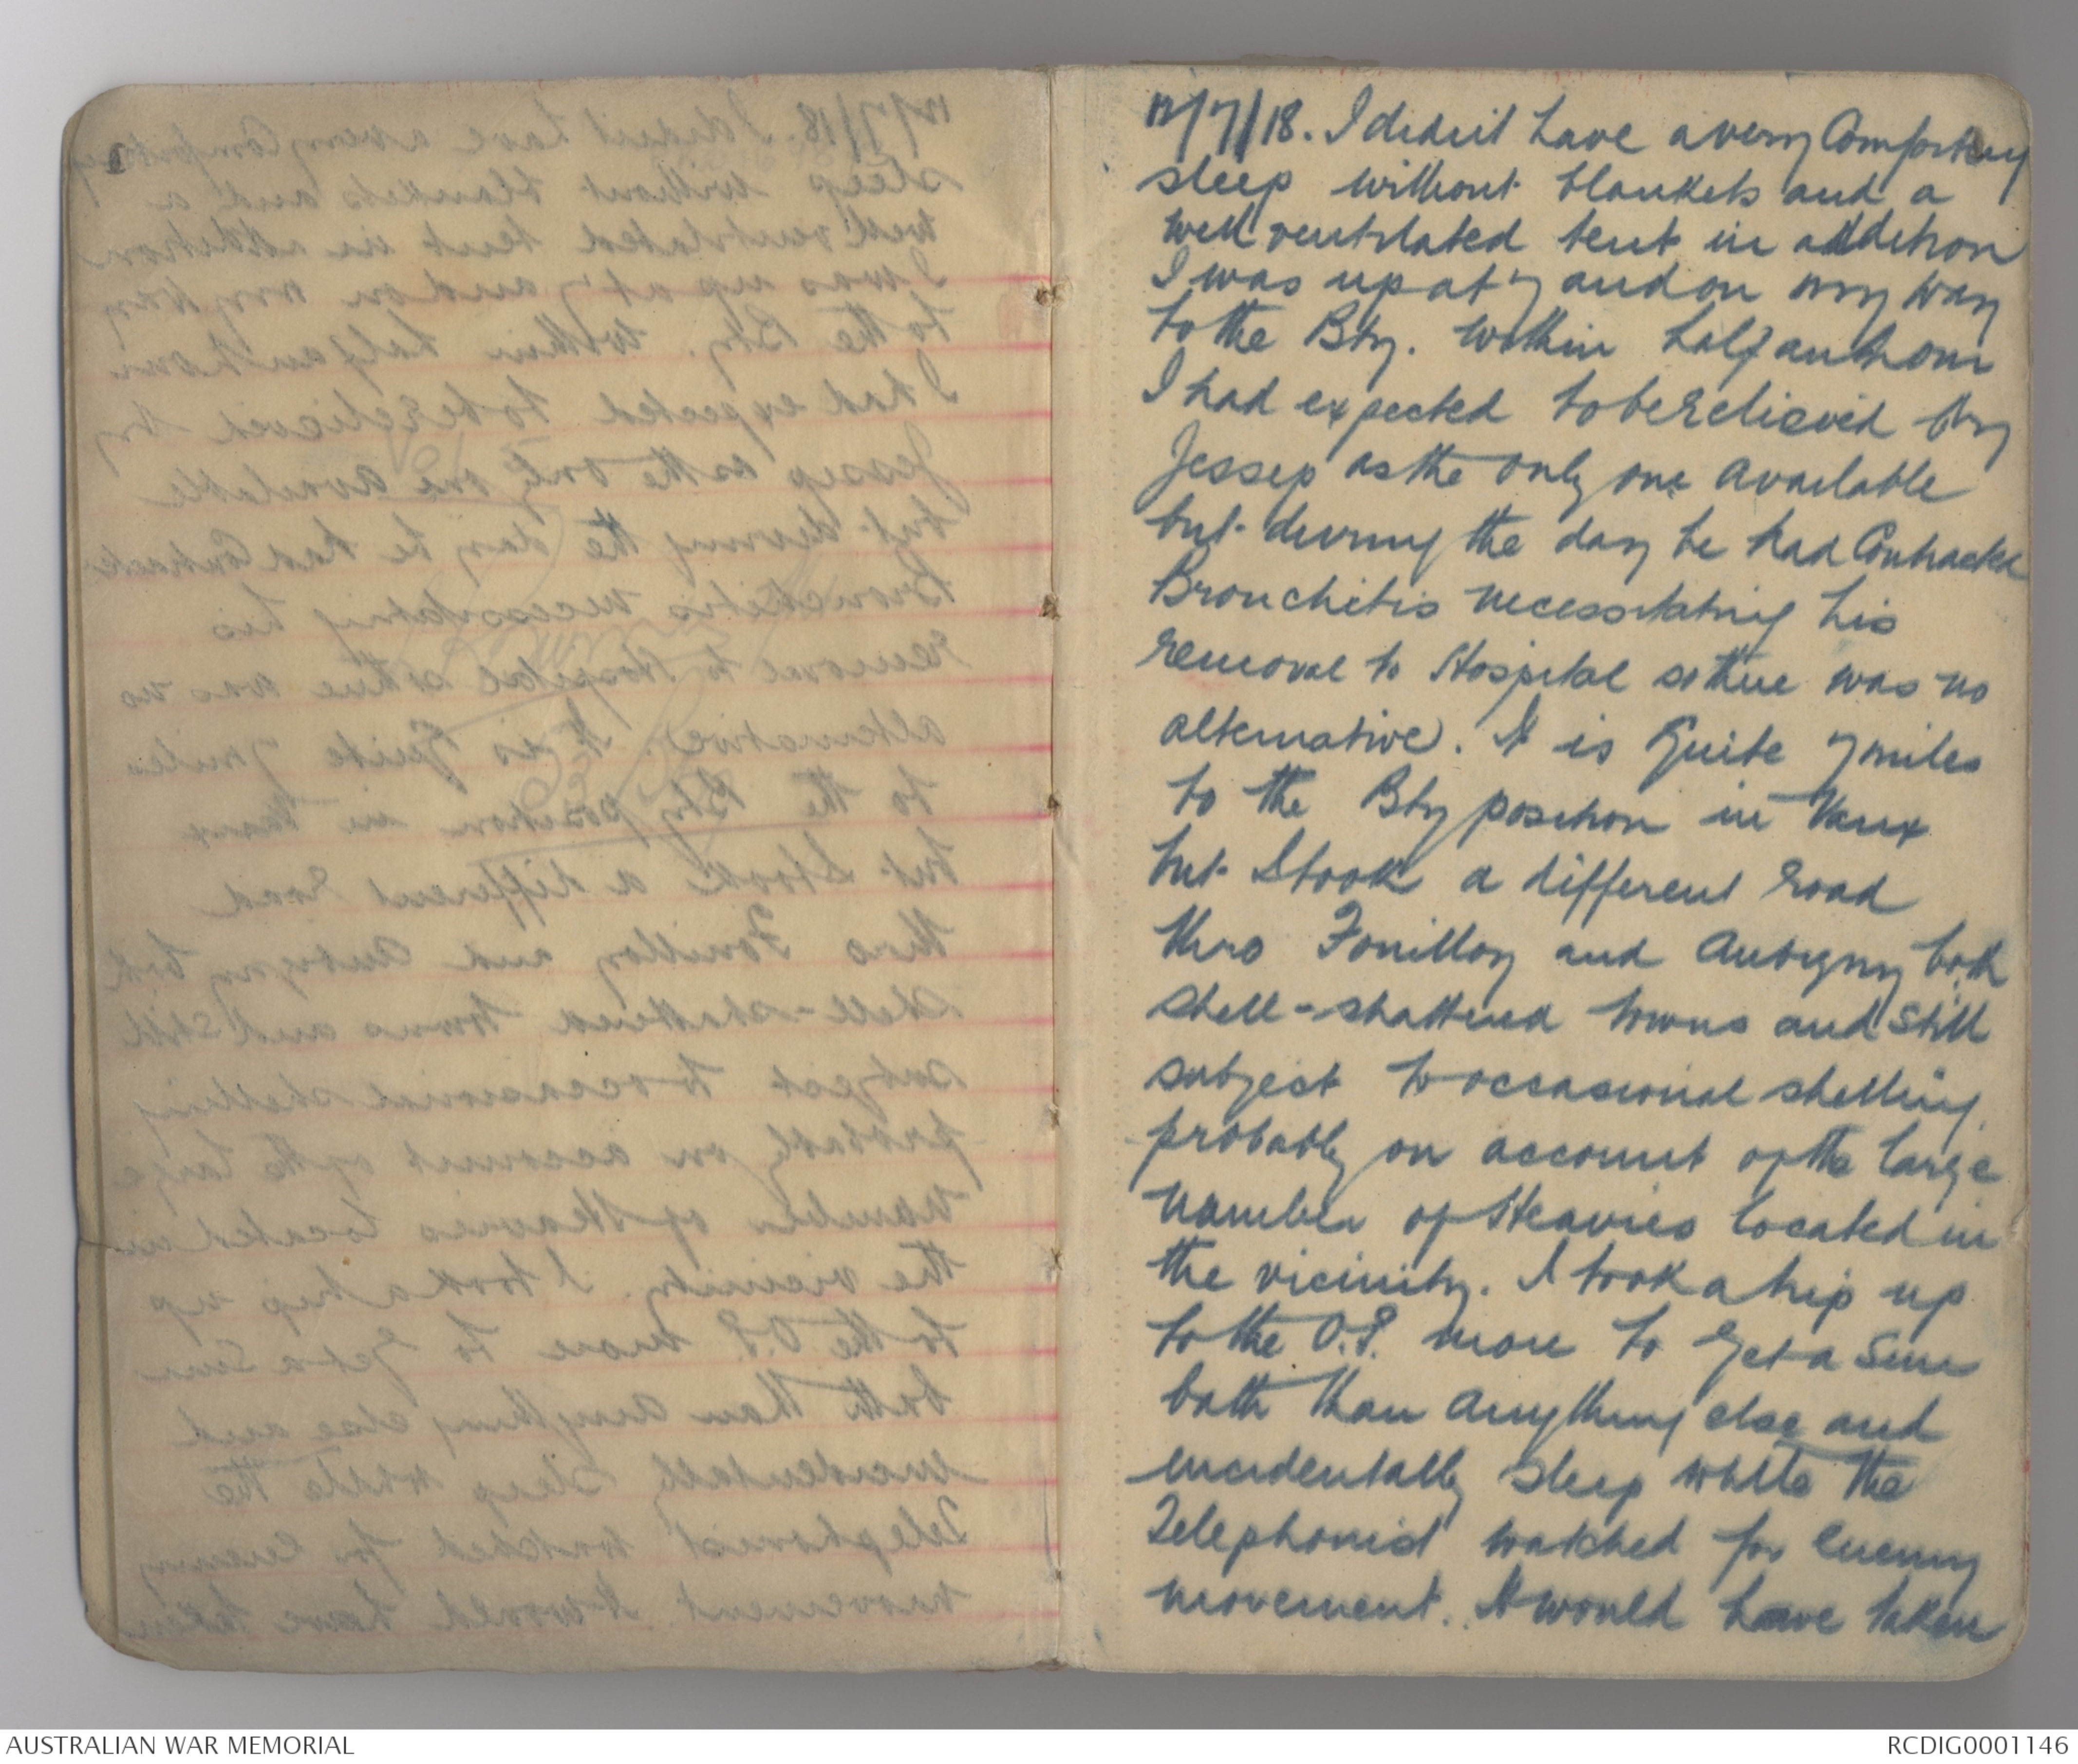 12/7/18. I didn't have a very Comfortay
sleep without blankets and a
well ventilated tent in addition
I was up at 7 and on my way
to the Bty. within half an hour
I had expected to be relieved by
Jessep as the only one available
but during the day he had Contracted
Bronchitis necessitating his
removal to Hospital so there was no
alternative. It is Quite 7 miles
to the Bty position in Vaux
but I took a different road
thro Fouilloy and Aubigny both
shell-shattered towns and still
subject to occasional shelling
probably on account of the large
number of Heavies located in
the vicinity. I took a trip up
to the O.P. more to get a Sun
bath than anything else and
incidentally sleep while the
Telephonist watched for Enemy
movement. It would have taken
AUSTRALIAN WAR MEMORIAL
RCDIG0001146